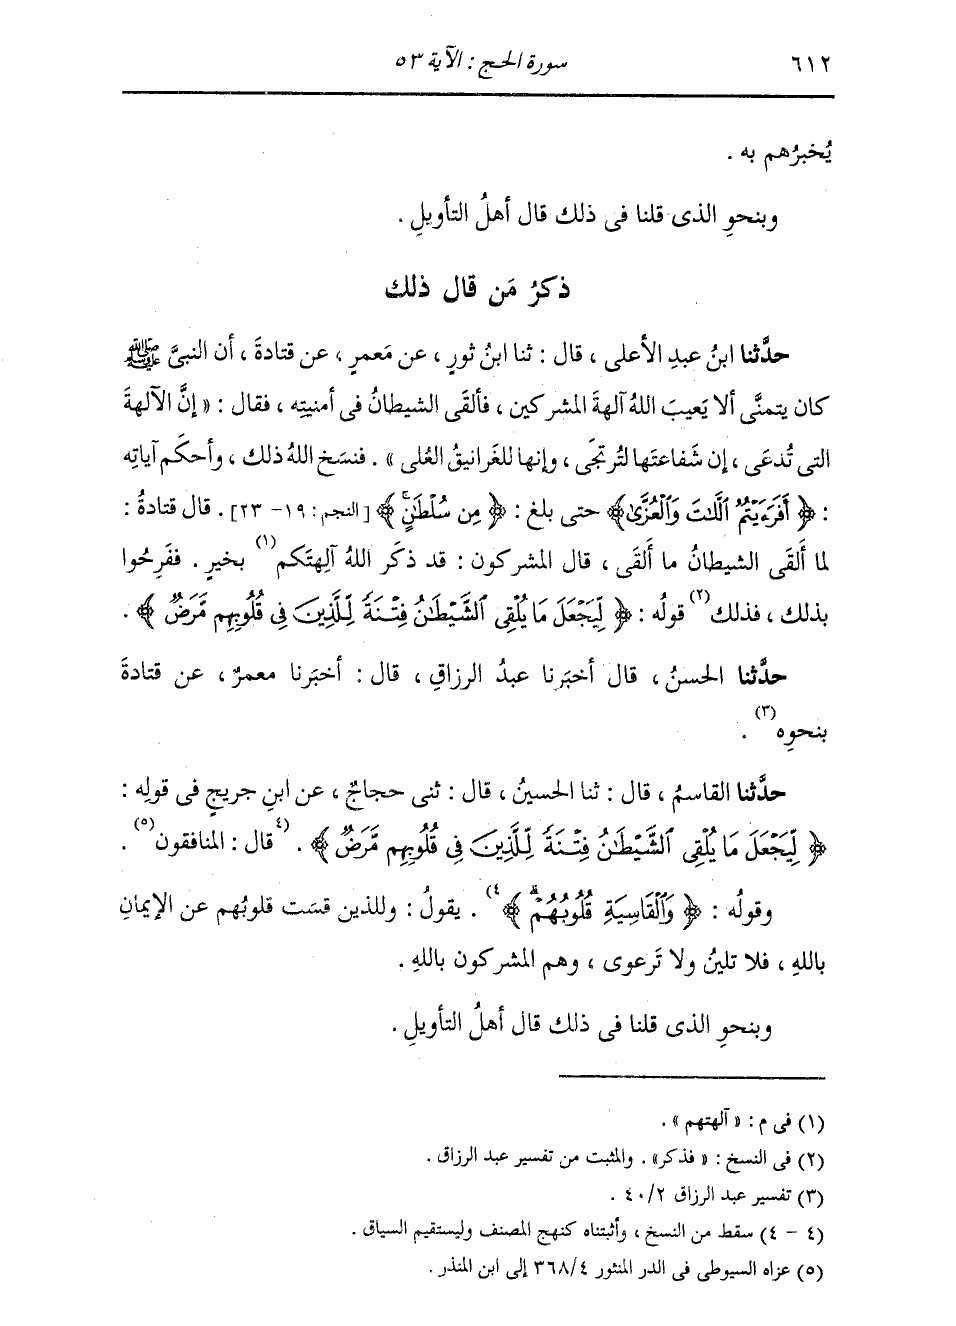 ٦١٢ سورة الحج : الآية ٥٣
يُخبرُهم به .
وبنحوِ الذى قلنا فى ذلك قال أهلُ التأويلِ .
ذكرُ مَن قال ذلك
حدَّثنا ابنُ عبدِ الأعلى ، قال : ثنا ابنُ ثورٍ ، عن مَعمرٍ ، عن قتادةَ ، أن النبىَّ ﷺ
كان يتمنَّى ألا يَعيبَ اللهُ آلهةَ المشركين ، فألقَى الشيطانُ فى أمنيتِه ، فقال : « إنَّ الآلهةَ
التى تُدعَى ، إن شفاعتَها لتُرتجَى ، وإنها للغرانيقُ العُلى » . فنسَخ اللهُ ذلك ، وأحكَم آياتِه
: ﴿ أَفَرَءَيْتُمُ ٱللَّٰتَ وَٱلْعُزَّىٰ ﴾ حتى بلغ : ﴿ مِن سُلْطَٰنٍ ۚ ﴾ [ النجم : ١٩ - ٢٣] . قال قتادةُ :
لما أَلقَى الشيطانُ ما أَلقَى ، قال المشركون : قد ذكَر اللهُ آلهتَكم (١) بخيرٍ . ففَرِحُوا
بذلك ، فذلك (٢) قولُه : ﴿ لِّيَجْعَلَ مَا يُلْقِى ٱلشَّيْطَٰنُ فِتْنَةً لِّلَّذِينَ فِى قُلُوبِهِم مَّرَضٌ ﴾ .
حدَّثنا الحسنُ ، قال أخبَرنا عبدُ الرزاقِ ، قال : أخبَرنا معمرٌ ، عن قتادةَ
بنحوِه (٣) .
حدَّثنا القاسمُ ، قال : ثنا الحسينُ ، قال : ثنى حجاجٌ ، عن ابنِ جريجٍ فى قولِه :
﴿ لِّيَجْعَلَ مَا يُلْقِى ٱلشَّيْطَٰنُ فِتْنَةً لِّلَّذِينَ فِى قُلُوبِهِم مَّرَضٌ ﴾ . (٤ قال : المنافقون (٥) .
وقولُه : ﴿ وَٱلْقَاسِيَةِ قُلُوبُهُمْ ۗ ﴾ ٤) . يقولُ : وللذين قسَت قلوبُهم عن الإيمانِ
باللهِ ، فلا تلينُ ولا تَرعوِى ، وهم المشركون باللهِ .
وبنحوِ الذى قلنا فى ذلك قال أهلُ التأويلِ .
(١) فى م : « آلهتهم » .
(٢) فى النسخ : « فذكر» . والمثبت من تفسير عبد الرزاق .
(٣) تفسير عبد الرزاق ٤٠/٢ .
(٤ - ٤) سقط من النسخ ، وأثبتناه كنهج المصنف وليستقيم السياق .
(٥) عزاه السيوطى فى الدر المنثور ٣٦٨/٤ إلى ابن المنذر .